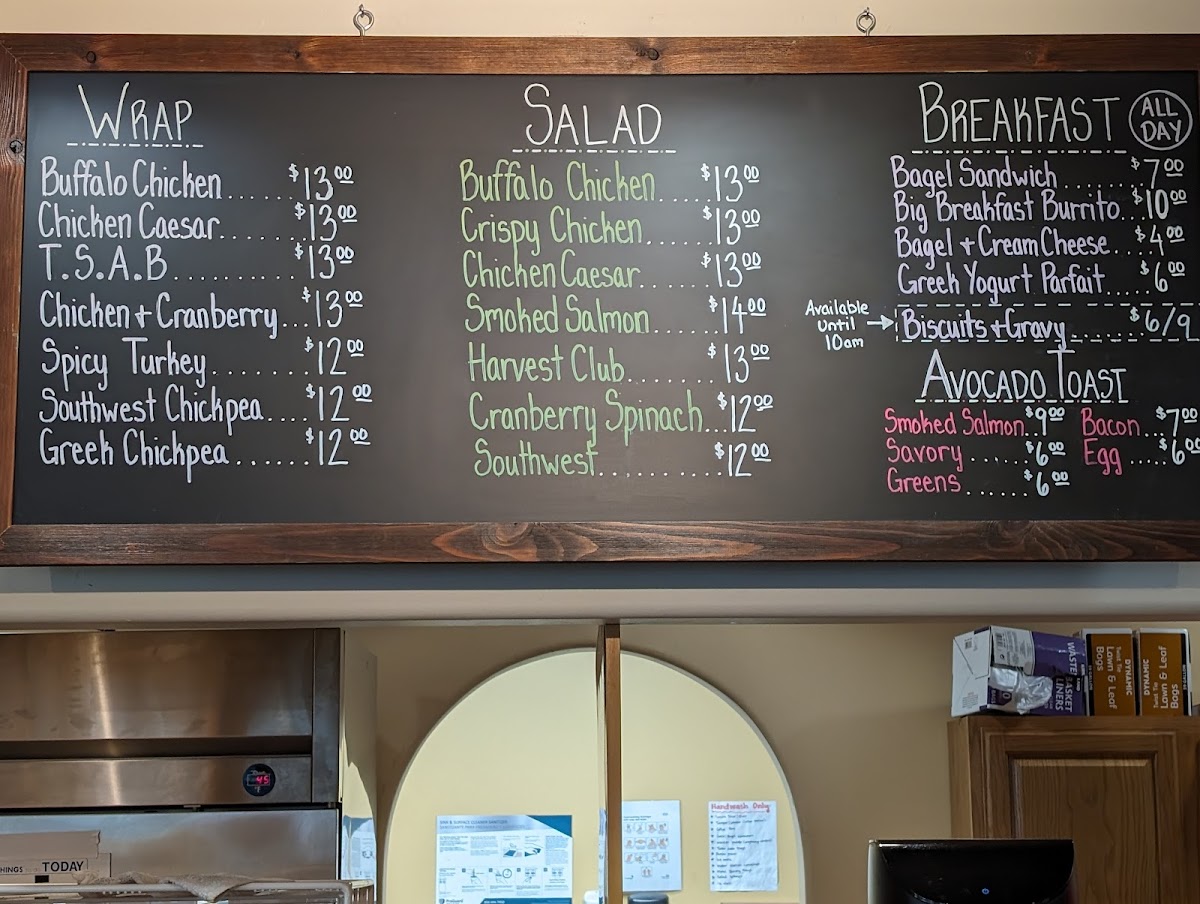 WRAP
Buffalo Chicken...... $13.00
Chicken Caesar....... $13.00
T.S.A.B.......... $13.00
Chicken + Cranberry... $13.00
Spicy Turkey....... $12.00
Southwest Chickpea.... $12.00
Greek Chickpea....... $12.00
SALAD
Buffalo Chicken..... $13.00
Crispy Chicken..... $13.00
Chicken Caesar..... $13.00
Smoked Salmon..... $14.00
Harvest Club....... $13.00
Cranberry Spinach... $12.00
Southwest......... $12.00
BREAKFAST ALL DAY
Bagel Sandwich....... $7.00
Big Breakfast Burrito... $10.00
Bagel + Cream Cheese... $4.00
Greek Yogurt Parfait..... $6.00
Available Until 10am → Biscuits + Gravy..... $6/9
AVOCADO TOAST
Smoked Salmon.. $9.00
Savory ..... $6.00
Greens ...... $6.00
Bacon... $7.00
Egg ..... $6.00
WASTE BASKET LINERS
DYNAMIC
Lawn & Leaf Bags
DYNAMIC
Lawn & Leaf Bags
45
°F
Handwash Only
HINGS
TODAY